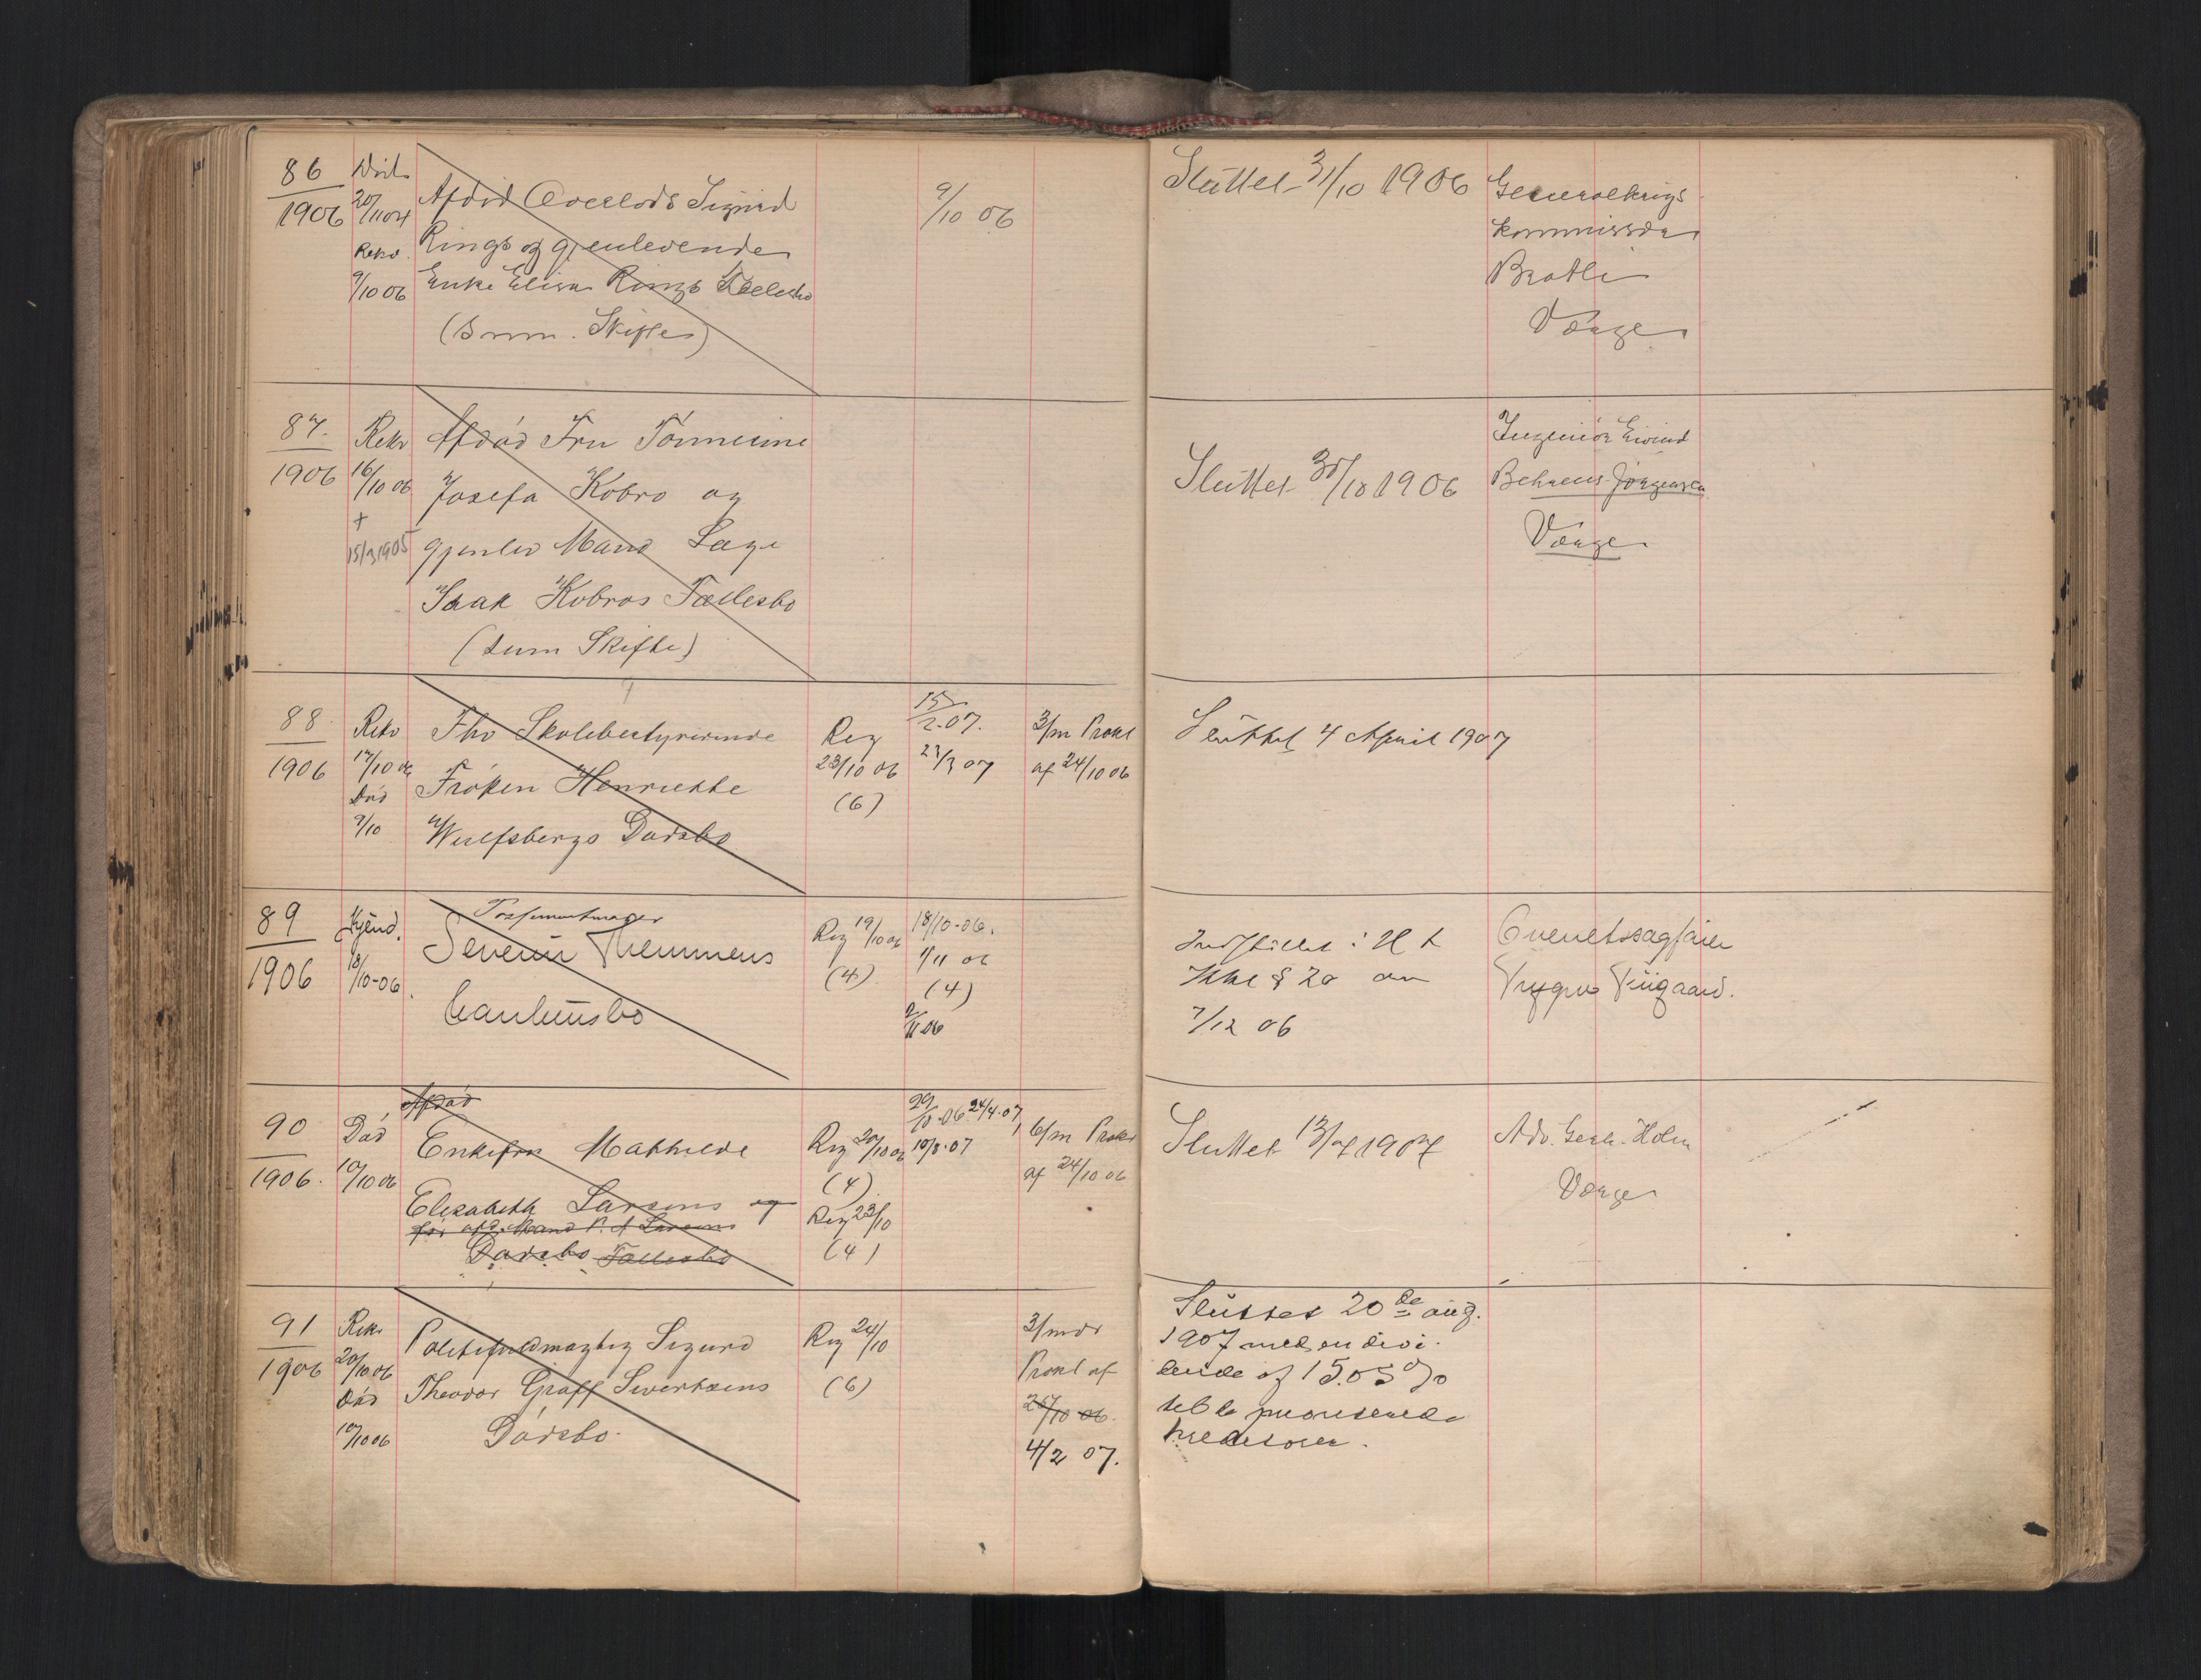 86
1906
Død
20/11 04
Rekv.
9/10 06
Afdød Overlods Sigurd
Rings og gjenlevende
Enke Elise Rings Fællesbo
(Sum. Skifte)
9/10 06
Sluttet 31/10 1906
Generalkrigs
kommissær
Bratlie
Værge
87.
1906
Rekv
16/10 06
+
15/3 1905
Afdød Fru Tonnesine
Josefa Kobro og
gjenlev Mand Læge
Isak Kobros Fællesbo
(sum Skifte)
Sluttet 31/10 1906
Ingeniør Eivind
Behrens Jørgensen
Værge
88
1906
Rekv
17/10 06
Død
9/10
Fhv Skolebestyrerinde
Frøken Henriette
Wulfsbergs Dødsbo
Reg
23/10 06
(6)
15/2.07.
23/3 07
3/m Prokl
af 24/10 06
Sluttet 4 April 1907
89
1906
Kjend.
18/10-06.
Possementmager
Severin Themmens
Conkursbo
Reg 19/10 06
(4)
18/10-06.
1/11 06
(4)
2/11 06
Indstillet i H t
Kkl § 20 den
7/12 06
Overretssagfører
Trygve Wiigaard.
90
1906.
Død
10/10 06
Afdød
Enkefru Mathilde
Elisabeth Larsens og
før afd. Mand P. A. Larsens
Dødsbo Fællesbo
Reg 20/10 06
(4)
Reg 23/10
(4)
29/10-06 24/4-07,
10/8-07
6/m Prokl
af 24/10 06
Sluttet 13/7 1907
Adv. Gerh. Holm
Værge
91
1906
Rekv
20/10 06
Død
10/10 06
Politifuldmægtig Sigurd
Theodor Graff Sivertsens
Dødsbo.
Reg 24/10
(6)
3/mdr
Prokl af
26/10 06.
4/2 07.
Sluttet 20de aug.
1907 med en divi-
dende af 15.05 %
til de prioriterede
kreditorer.